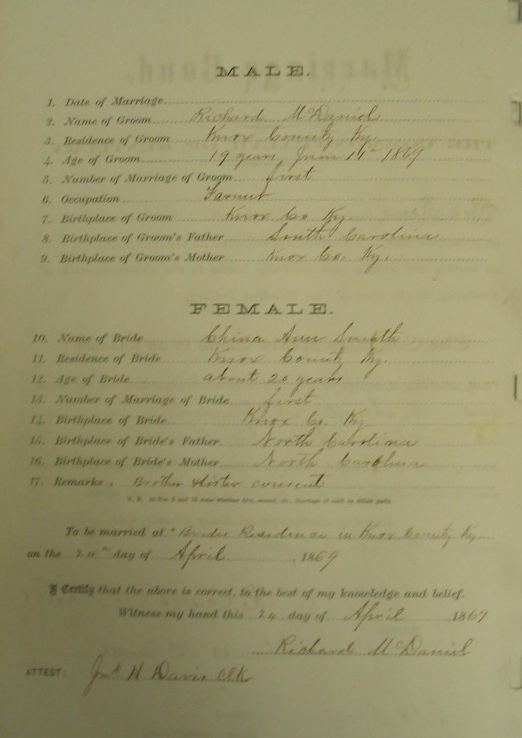 MALE.
1. Date of Marriage
2. Name of Groom Richard McDaniel
3. Residence of Groom Knox County Ky.
4. Age of Groom 19 years, June 14th 1869
5. Number of Marriage of Groom first
6. Occupation Farmer
7. Birthplace of Groom Knox Co Ky.
8. Birthplace of Groom's Father South Carolina
9. Birthplace of Groom's Mother Knox Co. Ky.
FEMALE.
10. Name of Bride China Ann Smith
11. Residence of Bride Knox County Ky.
12. Age of Bride about 20 years
13. Number of Marriage of Bride first
14. Birthplace of Bride Knox Co. Ky
15. Birthplace of Bride's Father North Carolina
16. Birthplace of Bride's Mother North Carolina
17. Remarks. Brother consent
To be married at Brides Residence in Knox County Ky.
on the 24th day of April, 1869
I Certify that the above is correct, to the best of my knowledge and belief.
Witness my hand this 24 day of April 1869
Richard McDaniel
ATTEST: H Davis Clk